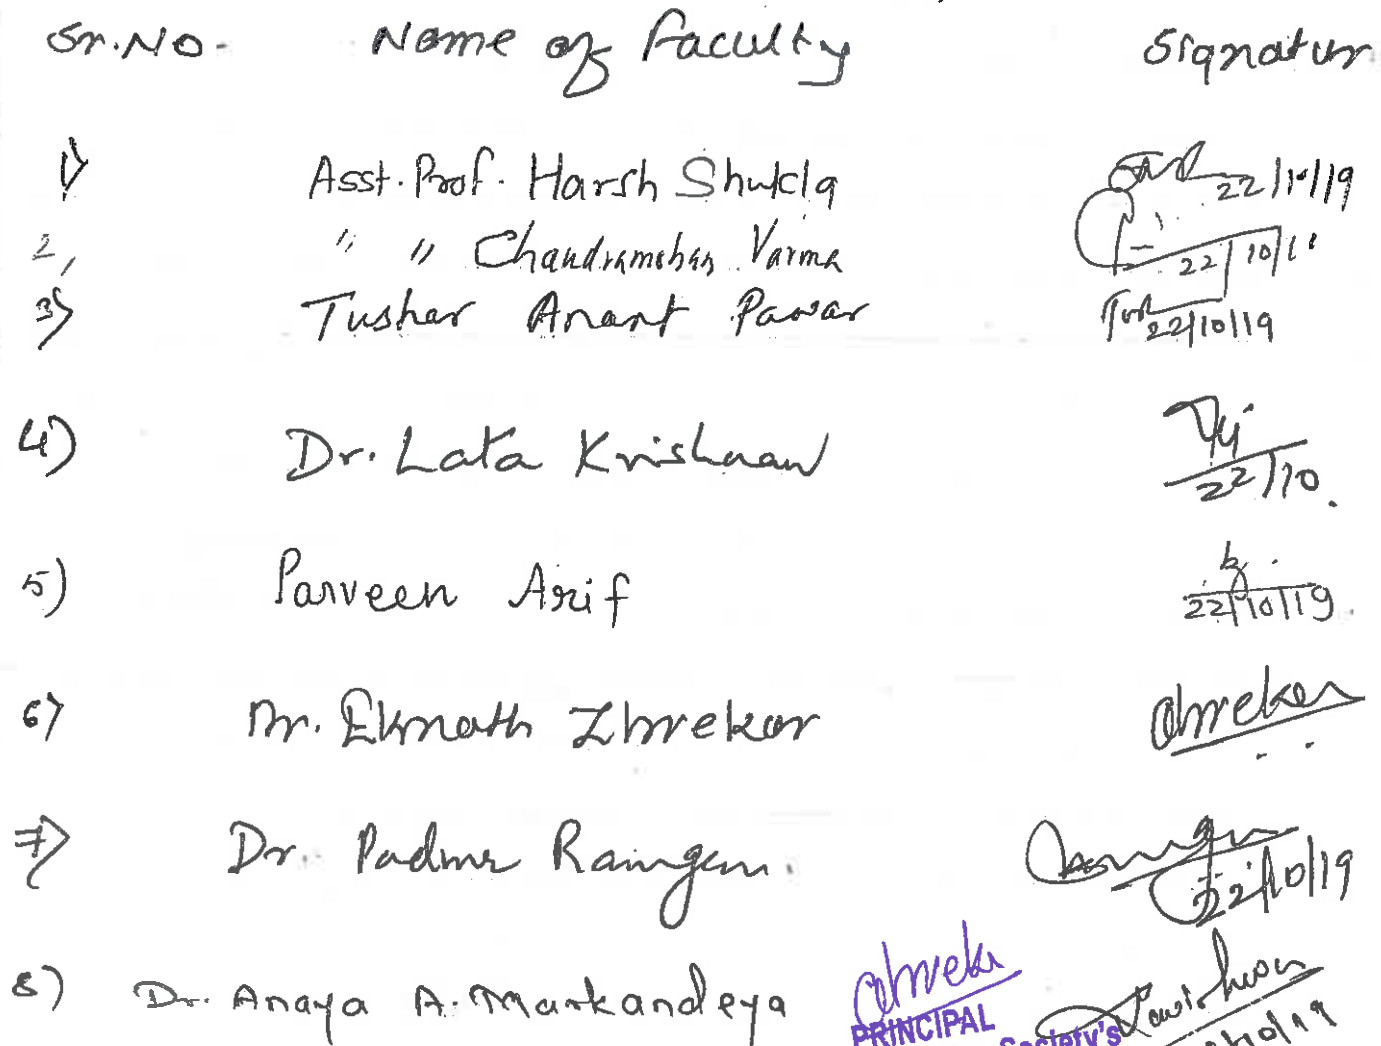 Sr.No. Name of Faculty Signatur
1) Asst. Prof. Harsh Shukla 22/10/19
2, " " Chandramohan Varma 22/10/1
3) Tushar Anant Pawar 22/10/19
4) Dr. Lata Krishnan 22/10.
5) Parveen Arif 22/10/19.
6) Dr. Eknath Zhrekar
7) Dr. Padma Rangan. 22/10/19
8) Dr. Anaya A. Markandeya
PRINCIPAL
Society's /10/19